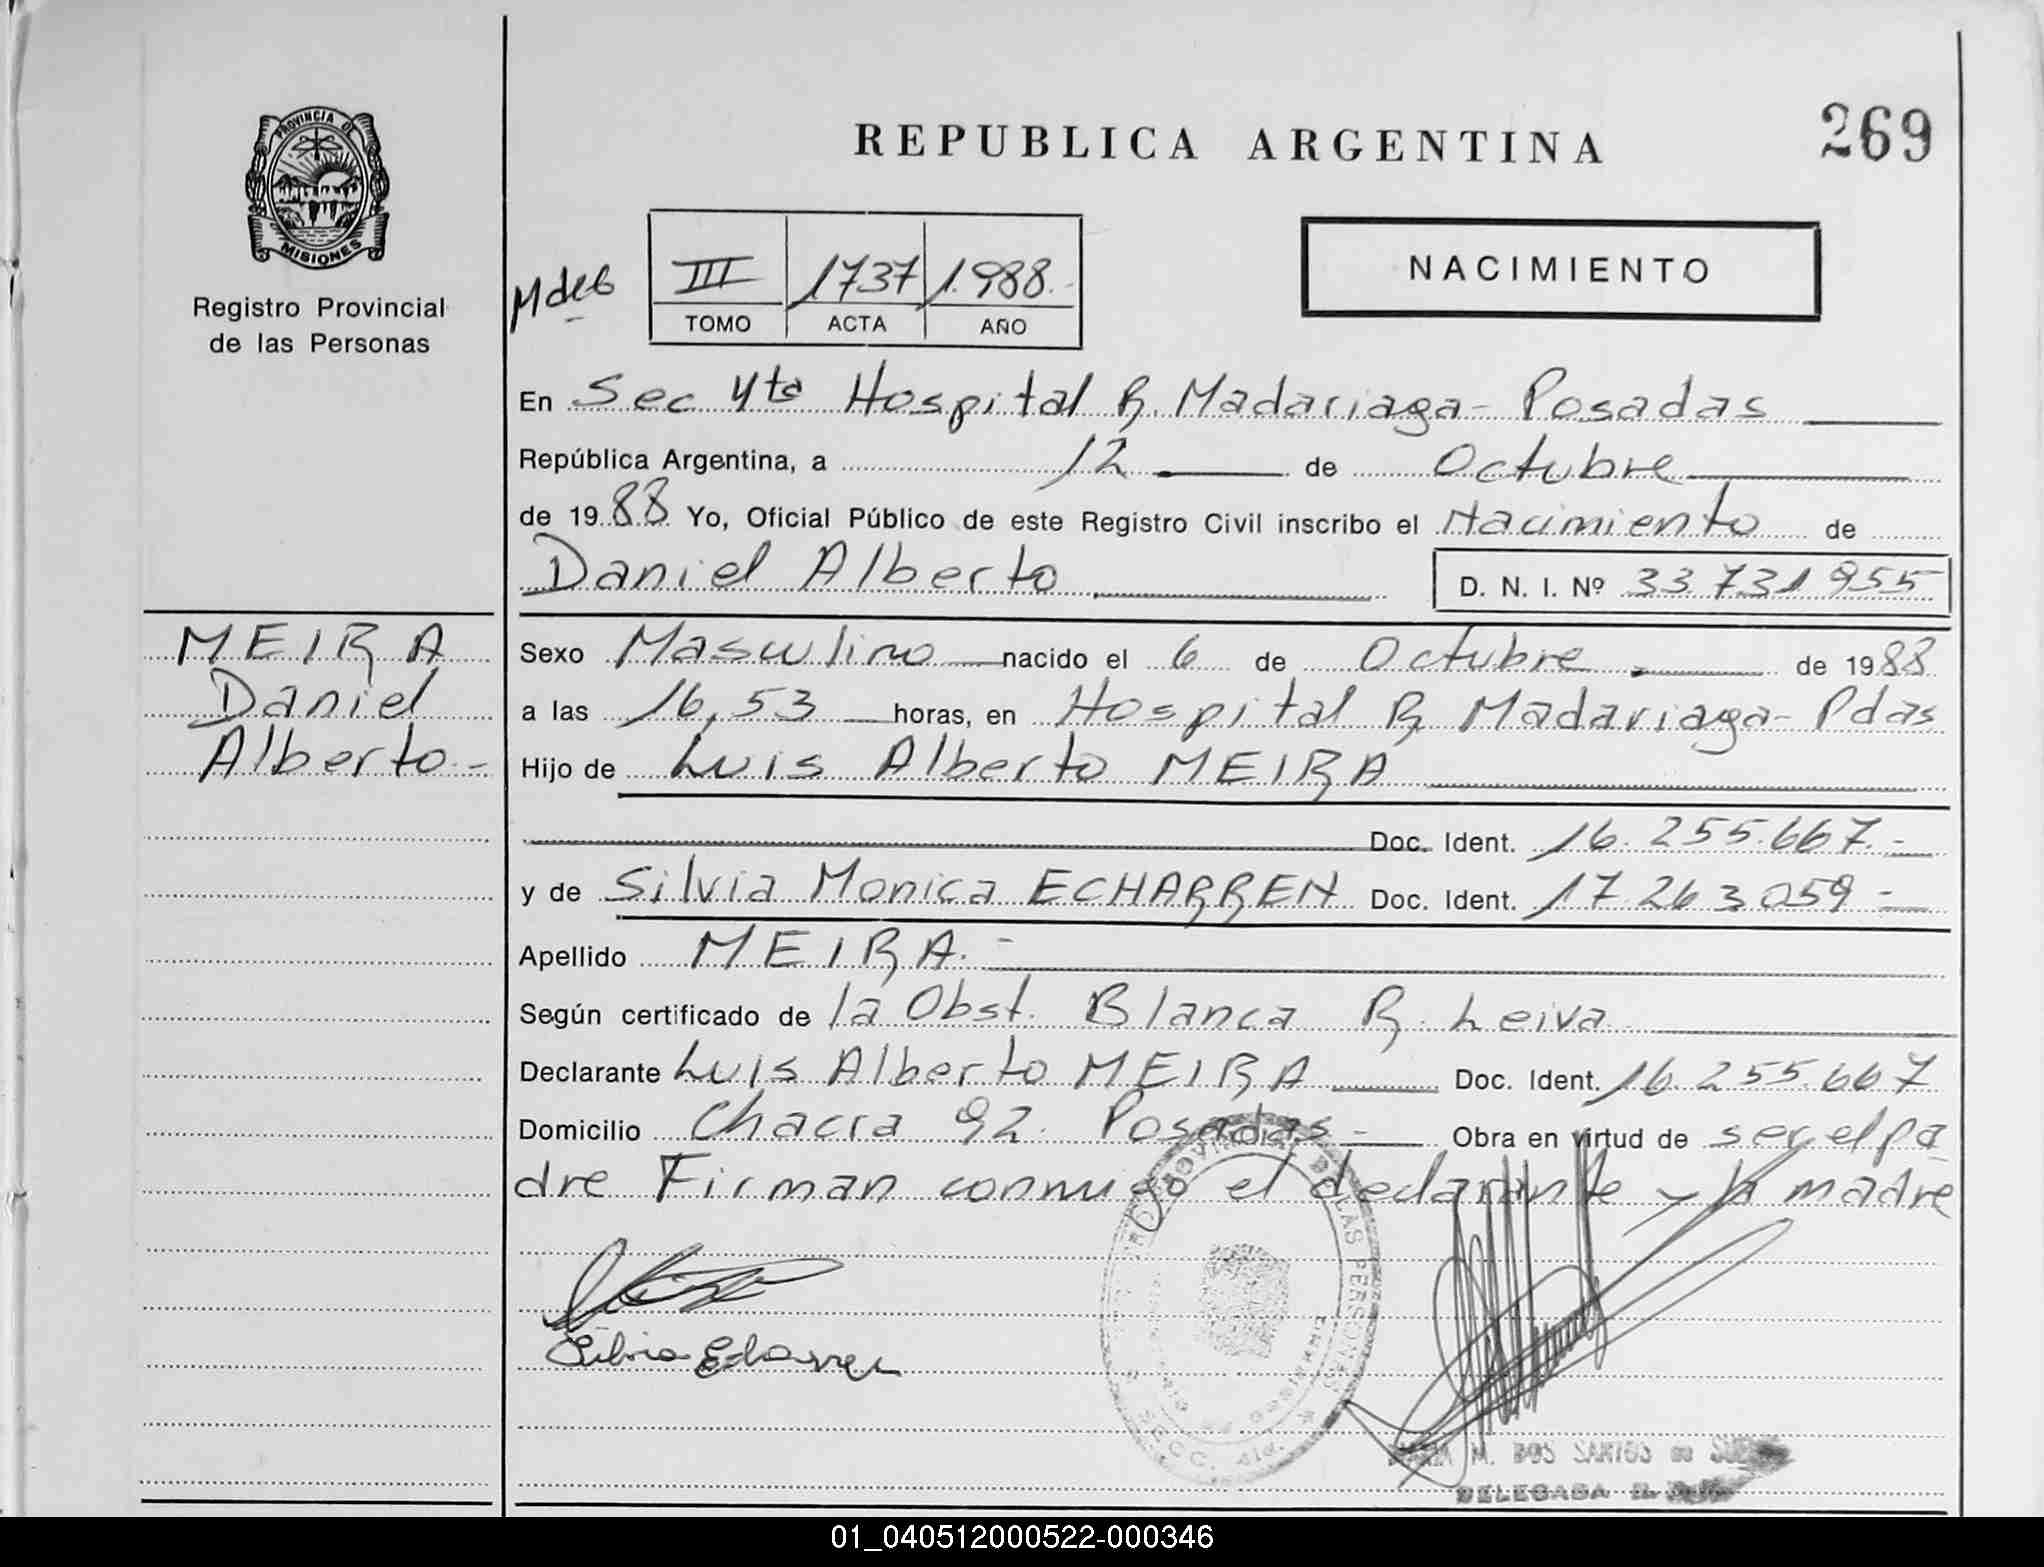 PROVINCIA DE
MISIONES
Registro Provincial
de las Personas
MEIRA
Daniel
Alberto.-
REPUBLICA ARGENTINA
269
III 1737 1.988.-
TOMO ACTA AÑO
NACIMIENTO
En Sec 4ta Hospital R. Madariaga - Posadas
República Argentina, a 12 de Octubre
de 1988 Yo, Oficial Público de este Registro Civil inscribo el Nacimiento de
Daniel Alberto D. N. I. Nº 33.731.955
Sexo Masculino nacido el 6 de Octubre de 1988
a las 16,53 horas, en Hospital R. Madariaga - Pdas
Hijo de Luis Alberto MEIRA
Doc. Ident. 16.255.667.-
y de Silvia Monica ECHARREN Doc. Ident. 17.263.059 -
Apellido MEIRA.-
Según certificado de la Obst. Blanca R. Leiva
Declarante Luis Alberto MEIRA Doc. Ident. 16.255.667
Domicilio Chacra 92. Posadas - Obra en virtud de ser el pa
dre Firman conmigo el declarante y la madre
Silvia Echarren
DE LAS PERSONAS
M. DOS SANTOS de
DELEGADA
01_040512000522-000346